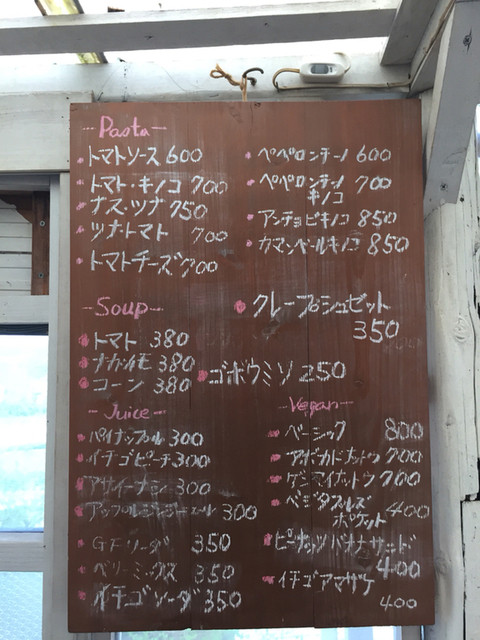 Pasta
トマトソース 600
トマト・キノコ 700
ナス・ツナ 750
ツナ・トマト 700
トマトチーズ 700
ペペロンチーノ 600
ペペロンチーノ 700
キノコ
アンチョビキノコ 850
カマンベールキノコ 850
Soup
トマト 380
ナガイモ 380
コーン 380
クレープシュゼット
350
ゴボウミソ 250
Juice
パイナップル 300
イチゴピーチ 300
アサイー 300
アップルジンジャーエール 300
GFソーダ 350
ベリーミックス 350
イチゴソーダ 350
Vegan
ベーシック 800
アボカドナットウ 700
ゲンマイナットウ 700
ベジタブルズ 400
ポケット
ピーナッツバナナサンド
400
イチゴアマザケ
400